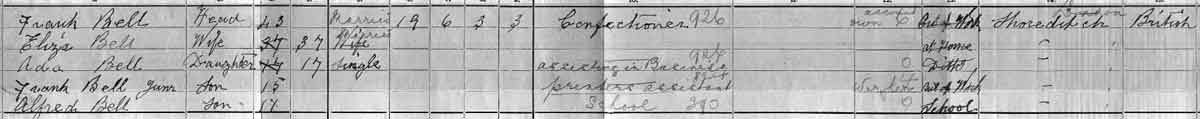 Frank Bell Head 43 Married 19 6 3 3 Confectioner 926 own Out of Work Shoreditch London British
Eliza Bell Wife 37 37 Married at Home
Ada Bell Daughter 17 17 Single assisting in Business 926 0 Ditto
Frank Bell Junr Son 15 printers assistant Worker Out of Work
Alfred Bell Son 11 School 390 0 School